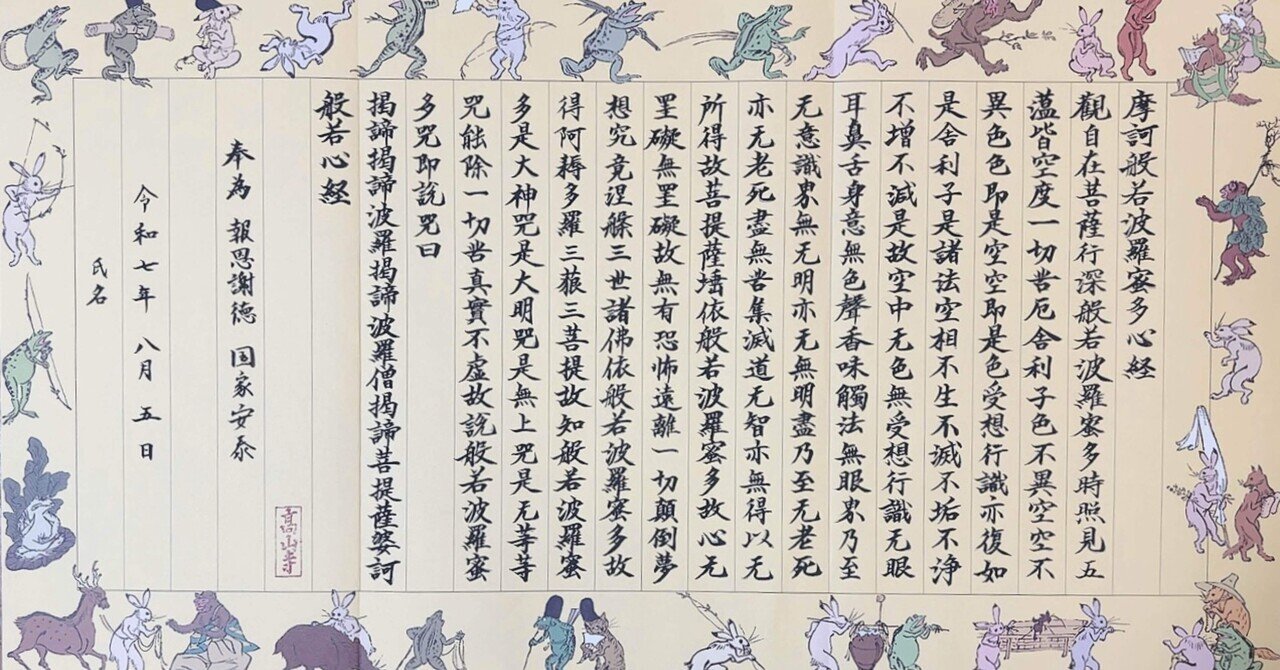 摩訶般若波羅蜜多心経
觀自在菩薩行深般若波羅蜜多時照見五
薀皆空度一切苦厄舍利子色不異空空不
異色色即是空空即是色受想行識亦復如
是舍利子是諸法空相不生不滅不垢不浄
不增不減是故空中无色無受想行識无眼
耳鼻舌身意無色聲香味觸法無眼界乃至
无意識界無无明亦无無明盡乃至无老死
亦无老死盡無苦集滅道无智亦無得以无
所得故菩提薩埵依般若波羅蜜多故心无
罣礙無罣礙故無有恐怖遠離一切顛倒夢
想究竟涅槃三世諸佛依般若波羅蜜多故
得阿耨多羅三藐三菩提故知般若波羅蜜
多是大神咒是大明咒是無上咒是无等等
咒能除一切苦真實不虛故説般若波羅蜜
多咒即説咒曰
揭諦揭諦波羅揭諦波羅僧揭諦菩提薩婆訶
般若心経
高山寺
奉為 報恩謝徳 国家安泰
令和七年 八月 五日
氏名